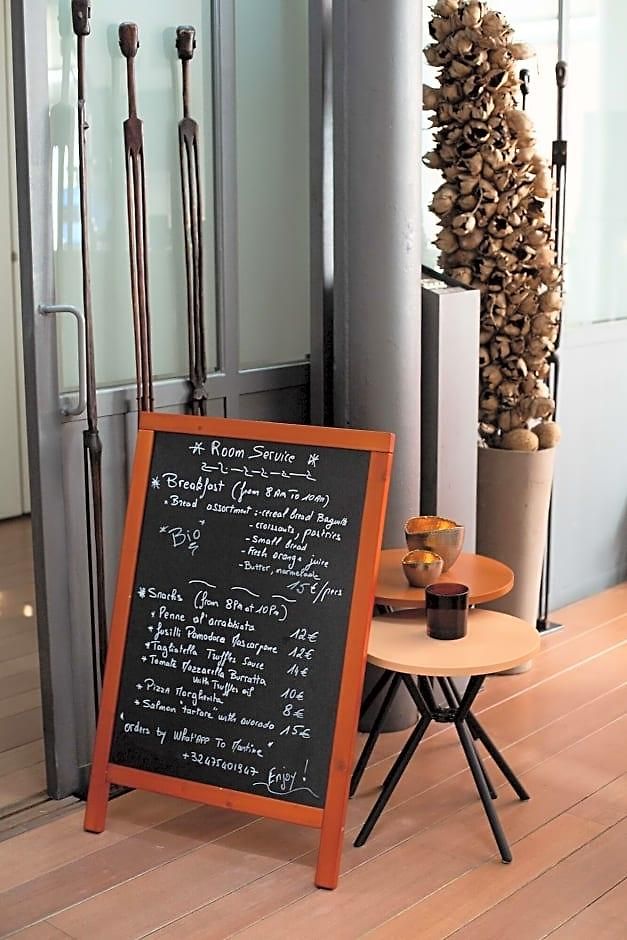 * Room Service *
* Breakfast (from 8AM To 10AM)
* Bread assortment :-cereal bread Baguette
- croissants, pastries
"Bio"
- Small bread
- Fresh orange juice
- Butter, marmelade
15€/pers
* Snacks (from 8PM at 10PM)
* Penne al'arrabbiata 12€
* fusilli Pomodoro Mascarpone 12€
* Tagliatella Truffes Sauce 14€
* Tomate Mozzarella Burratta
with Truffes oil 10€
* Pizza Margherita 8€
* Salmon "tartare" with avocado 15€
orders by What'APP To Martine
+32475401947
Enjoy!